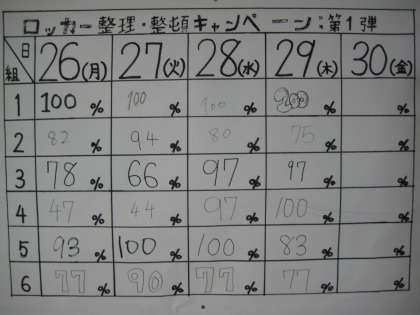 ロッカー整理・整頓キャンペーン:第1弾
日 組 26(月) 27(火) 28(水) 29(木) 30(金)
1 100% 100% 100% %
2 82% 94% 80% 75% %
3 78% 66% 97% 97% %
4 47% 44% 97% 100% %
5 93% 100% 100% 83% %
6 77% 90% 77% 77% %